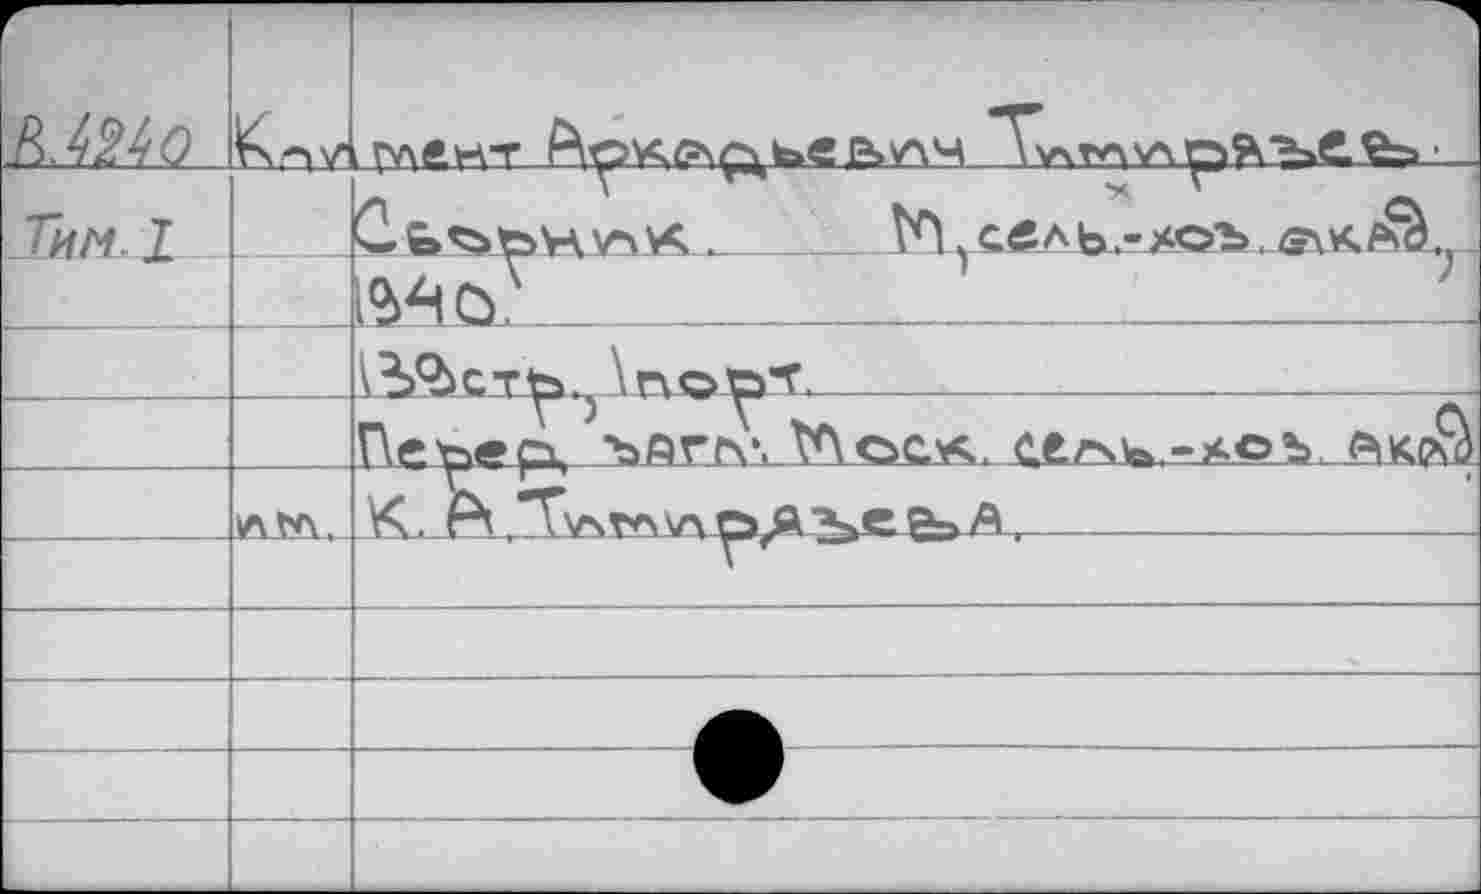 В.4240 Климент Аркадьевич Тимирязев.
Тим. I Сборник. М, сель.-хоз. акад.,
1940.
193стр., 1порт.
Перед загл: Моск. сель.-хоз. акад
им. К. А. Тимирязева.